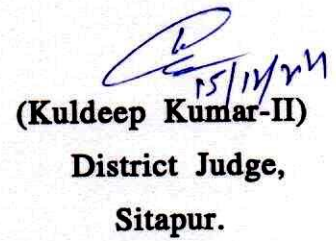 15/12/21
(Kuldeep Kumar-II)
District Judge,
Sitapur.